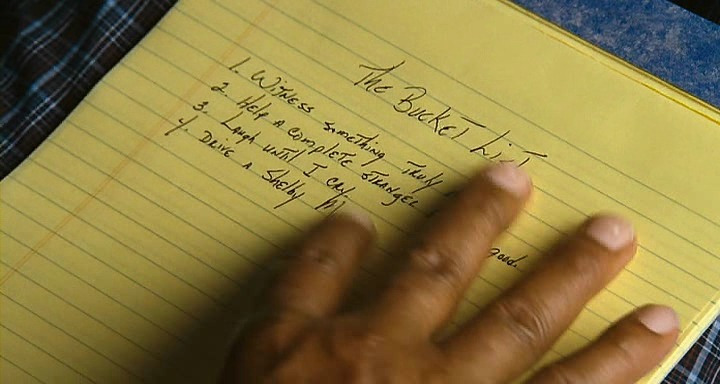 The Bucket List
1. Witness something truly
2. Help a complete stranger good.
3. Laugh until I cry
4. Drive a Shelby M